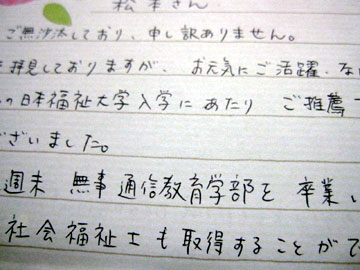 松本さん
ご無沙汰しており、申し訳ありません。
拝見しておりますが、お元気にご活躍、な
の日本福祉大学入学にあたり ご推薦
ございました。
週末 無事通信教育学部を 卒業い
社会福祉士も取得することがで